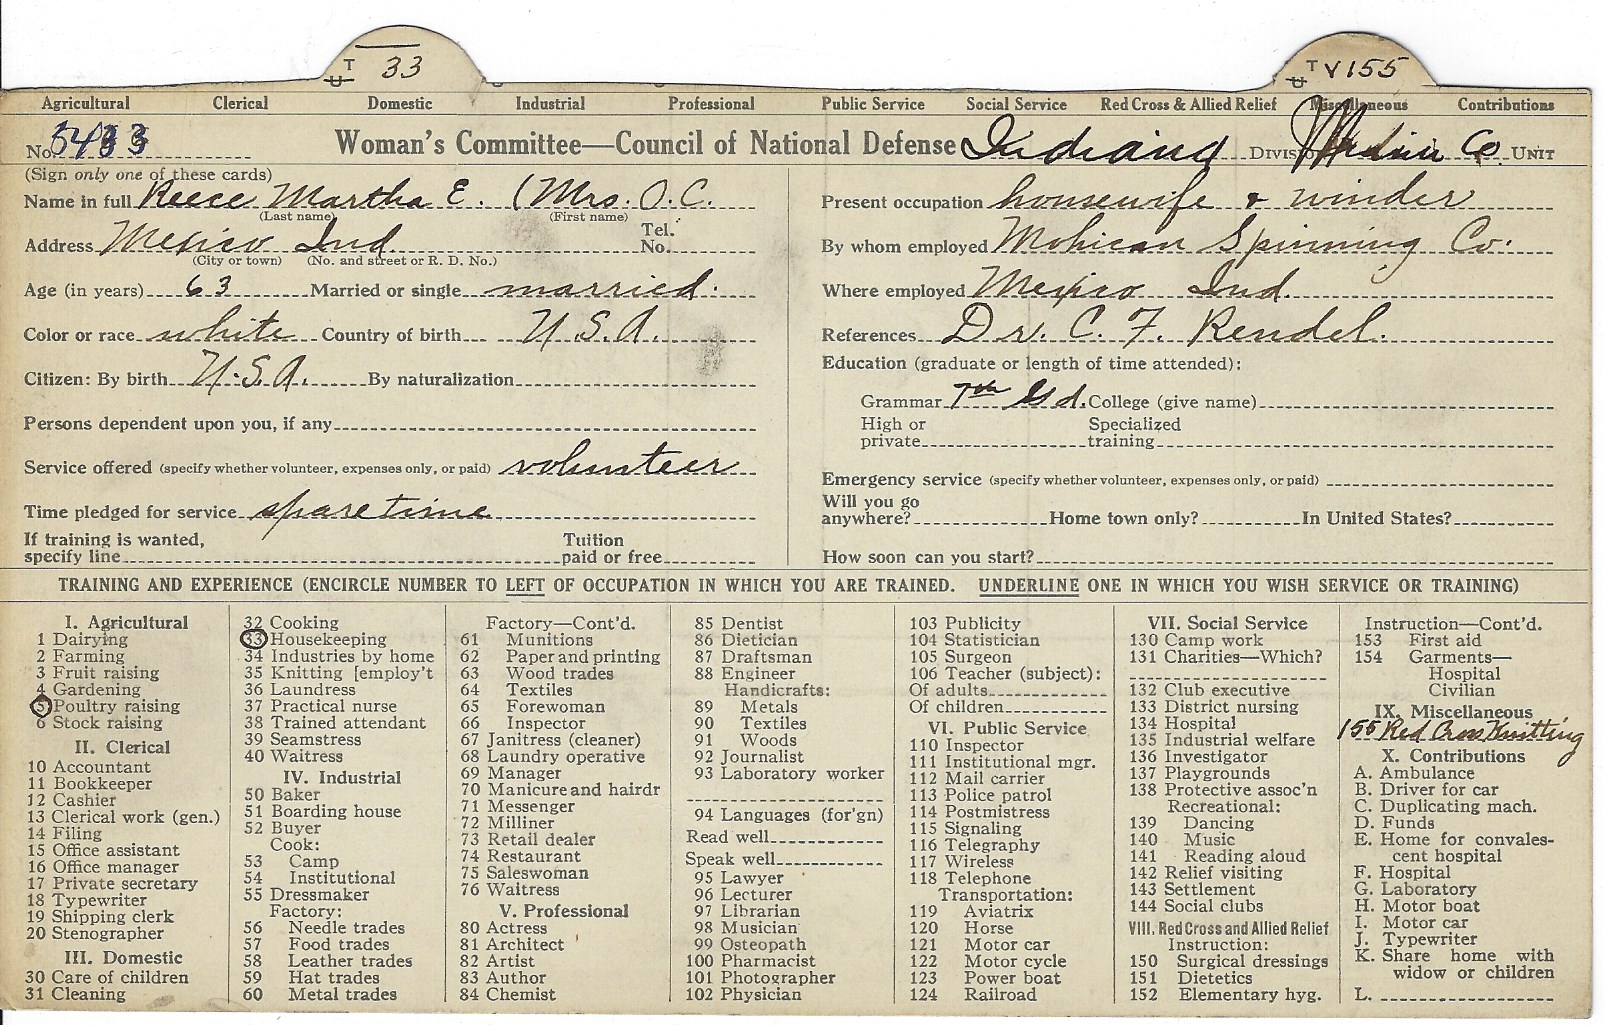 T U 33
T U V155
Agricultural Clerical Domestic Industrial Professional Public Service Social Service Red Cross & Allied Relief Miscellaneous Contributions
No. 5433 Woman's Committee—Council of National Defense Indiana Division Co. Unit
(Sign only one of these cards)
Name in full Reece Martha E. (Mrs. O. C.
(Last name) (First name)
Address Mexico Ind. Tel. No.
(City or town) (No. and street or R. D. No.)
Age (in years) 63 Married or single married.
Color or race white Country of birth U.S.A.
Citizen: By birth U.S.A. By naturalization
Persons dependent upon you, if any
Service offered (specify whether volunteer, expenses only, or paid) volunteer
Time pledged for service spare time
If training is wanted,
specify line Tuition paid or free
Present occupation housewife & winder
By whom employed Mohican Spinning Co.
Where employed Mexico Ind.
References Dr. C. F. Rendel.
Education (graduate or length of time attended):
Grammar 7th Gd. College (give name)
High or private Specialized training
Emergency service (specify whether volunteer, expenses only, or paid)
Will you go
anywhere? Home town only? In United States?
How soon can you start?
TRAINING AND EXPERIENCE (ENCIRCLE NUMBER TO LEFT OF OCCUPATION IN WHICH YOU ARE TRAINED. UNDERLINE ONE IN WHICH YOU WISH SERVICE OR TRAINING)
I. Agricultural
1 Dairying
2 Farming
3 Fruit raising
4 Gardening
5 Poultry raising
6 Stock raising
II. Clerical
10 Accountant
11 Bookkeeper
12 Cashier
13 Clerical work (gen.)
14 Filing
15 Office assistant
16 Office manager
17 Private secretary
18 Typewriter
19 Shipping clerk
20 Stenographer
III. Domestic
30 Care of children
31 Cleaning
32 Cooking
33 Housekeeping
34 Industries by home
35 Knitting [employ't
36 Laundress
37 Practical nurse
38 Trained attendant
39 Seamstress
40 Waitress
IV. Industrial
50 Baker
51 Boarding house
52 Buyer
Cook:
53 Camp
54 Institutional
55 Dressmaker
Factory:
56 Needle trades
57 Food trades
58 Leather trades
59 Hat trades
60 Metal trades
Factory—Cont'd.
61 Munitions
62 Paper and printing
63 Wood trades
64 Textiles
65 Forewoman
66 Inspector
67 Janitress (cleaner)
68 Laundry operative
69 Manager
70 Manicure and hairdr
71 Messenger
72 Milliner
73 Retail dealer
74 Restaurant
75 Saleswoman
76 Waitress
V. Professional
80 Actress
81 Architect
82 Artist
83 Author
84 Chemist
85 Dentist
86 Dietician
87 Draftsman
88 Engineer
Handicrafts:
89 Metals
90 Textiles
91 Woods
92 Journalist
93 Laboratory worker
94 Languages (for'gn)
Read well
Speak well
95 Lawyer
96 Lecturer
97 Librarian
98 Musician
99 Osteopath
100 Pharmacist
101 Photographer
102 Physician
103 Publicity
104 Statistician
105 Surgeon
106 Teacher (subject):
Of adults
Of children
VI. Public Service
110 Inspector
111 Institutional mgr.
112 Mail carrier
113 Police patrol
114 Postmistress
115 Signaling
116 Telegraphy
117 Wireless
118 Telephone
Transportation:
119 Aviatrix
120 Horse
121 Motor car
122 Motor cycle
123 Power boat
124 Railroad
VII. Social Service
130 Camp work
131 Charities—Which?
132 Club executive
133 District nursing
134 Hospital
135 Industrial welfare
136 Investigator
137 Playgrounds
138 Protective assoc'n
Recreational:
139 Dancing
140 Music
141 Reading aloud
142 Relief visiting
143 Settlement
144 Social clubs
VIII. Red Cross and Allied Relief
Instruction:
150 Surgical dressings
151 Dietetics
152 Elementary hyg.
Instruction—Cont'd.
153 First aid
154 Garments—
Hospital
Civilian
IX. Miscellaneous
155 Red Cross Knitting
X. Contributions
A. Ambulance
B. Driver for car
C. Duplicating mach.
D. Funds
E. Home for convales-
cent hospital
F. Hospital
G. Laboratory
H. Motor boat
I. Motor car
J. Typewriter
K. Share home with
widow or children
L.